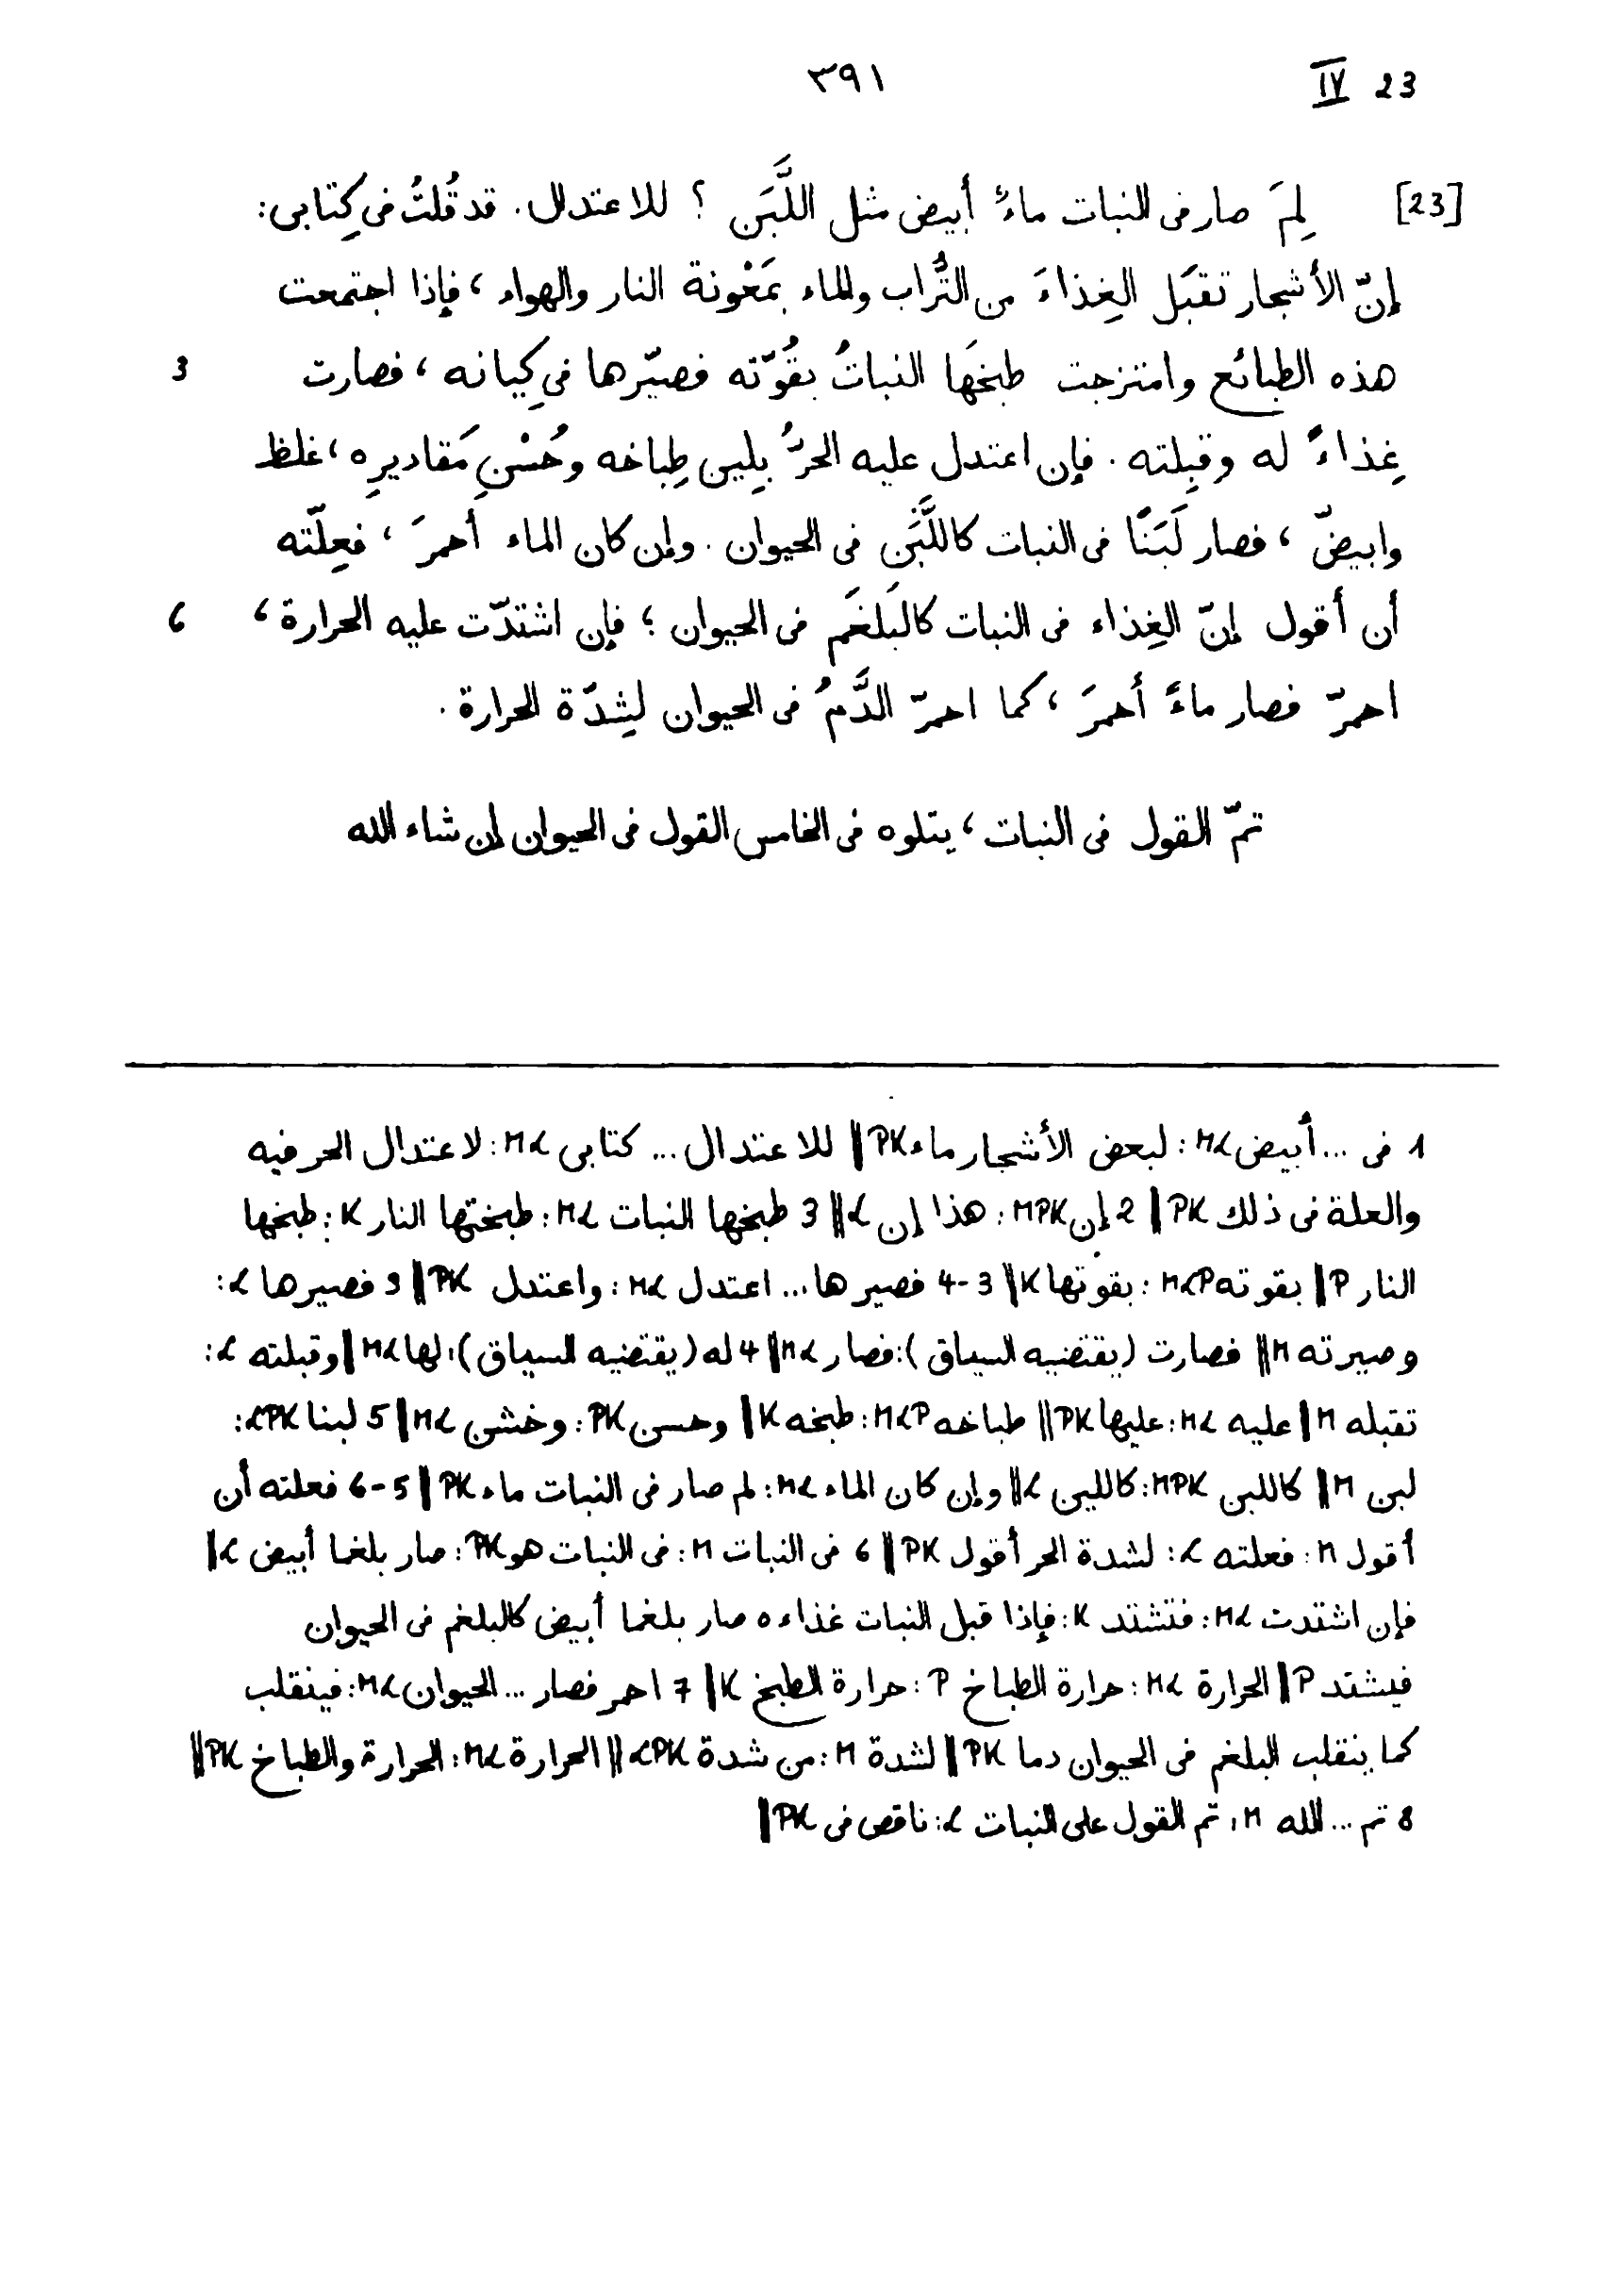 IV 23 ٣٩١
[23] لِمَ صار فى النبات ماءٌ أبيض مثل اللَّبَن ؟ للاعتدال. قد قُلتُ فى كِتابى:
إنّ الأشجار تقبَل الغِذاءَ من التُّراب والماء بمَعْونة النار والهواء ، فإذا اجتمعت
هذه الطبائع وامتزجت طبخَها النباتُ بقُوّته فصيّرها فى كِيانه ، فصارت 3
غِذاءً له وقبِلته . فإن اعتدل عليه الحرُّ بِلين طِباخه وحُسْنِ مَقاديرِه ، غلظ
وابيضّ ، فصار لَبَنًا فى النبات كاللَّبَن فى الحيوان . وإن كان الماء أحمرَ ، فعِلّته
أن أقول إنّ الغِذاء فى النبات كالبَلغَم فى الحيوان ؛ فإن اشتدّت عليه الحرارة ، 6
احمرّ فصار ماءً أحمرَ ، كما احمرّ الدَّمُ فى الحيوان لِشِدّة الحرارة .
تمّ القول فى النبات ، يتلوه فى الخامس القول فى الحيوان إن شاء الله
1 فى ... أبيض ML: لبعض الأشجار ماء PK || للاعتدال ... كتابى ML: لاعتدال الحر فيه
والعلة فى ذلك PK || 2 إن MPK: هذا إن L || 3 طبخها النبات ML: طبختها النار K: طبخها
النار P || بقوته MLP: بقوتها K || 3-4 فصيرها... اعتدل ML: واعتدل PK || 3 فصيرها L:
وصيرته M || فصارت (يقتضيه السياق): فصار ML || 4 له (يقتضيه السياق): لها ML || وقبلته L:
تقبله M || عليه ML: عليها PK || طباخه MLP: طبخه K || وحسن PK: وخشى ML || 5 لبنا LPK:
لبن M || كاللبن MPK: كاللين L || وإن كان الماء ML: لم صار فى النبات ماء PK || 5-6 فعلته أن
أقول M: فعلته L: لشدة الحر أقول PK || 6 فى النبات M: فى النبات هو PK: صار بلغما أبيض L ||
فإن اشتدت ML: فتشتد K: فإذا قبل النبات غذاءه صار بلغما أبيض كالبلغم فى الحيوان
فيشتد P || الحرارة ML: حرارة الطباخ P: حرارة الطبخ K || 7 احمر فصار ... الحيوان ML: فينقلب
كما ينقلب البلغم فى الحيوان دما PK || لشدة M: من شدة LPK || الحرارة ML: الحرارة والطباخ PK ||
8 تم ... الله M: تم القول على النبات L: ناقص فى PK ||